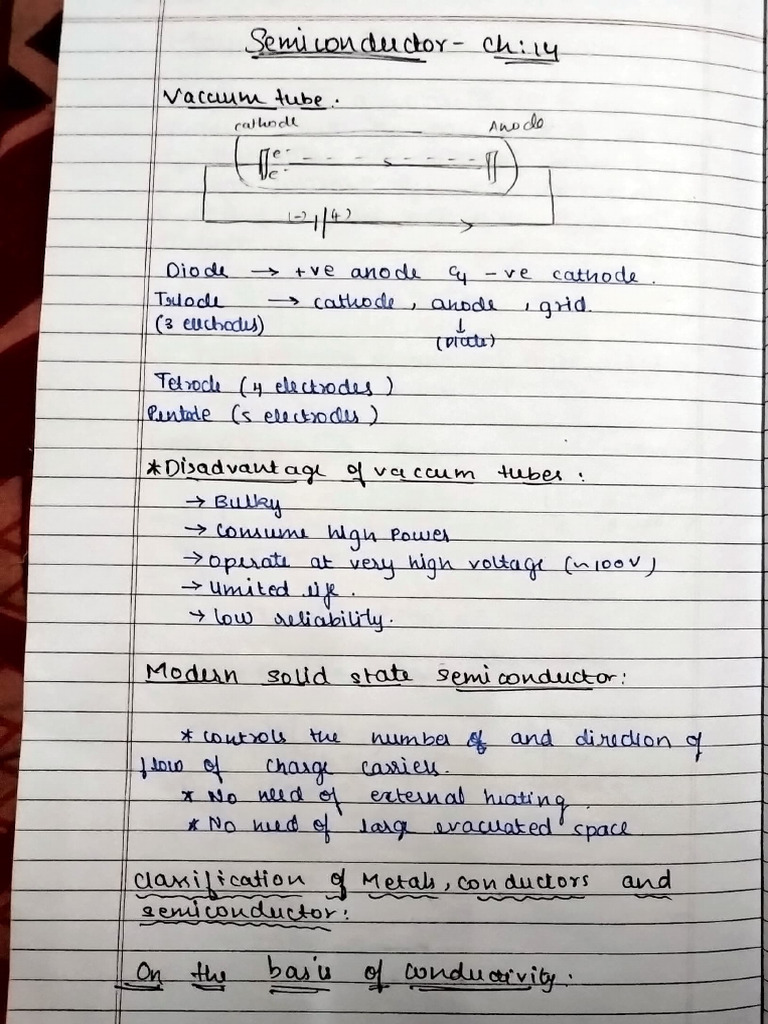 Semiconductor - Ch:14
Vaccum tube.
cathode Anode
e-
e-
(-) (+)
Diode → +ve anode & -ve cathode.
Triode → cathode, anode, grid.
(3 electrodes) ↓
(plate)
Tetrode (4 electrodes)
Pentode (5 electrodes)
*Disadvantage of vaccum tubes:
→ Bulky
→ consume high power
→ operate at very high voltage (~100V)
→ limited life.
→ low reliability.
Modern solid state semiconductor:
* controls the number of and direction of
flow of charge carriers.
* No need of external heating.
* No need of large evacuated space
classification of Metals, conductors and
semiconductor:
On the basis of conductivity: